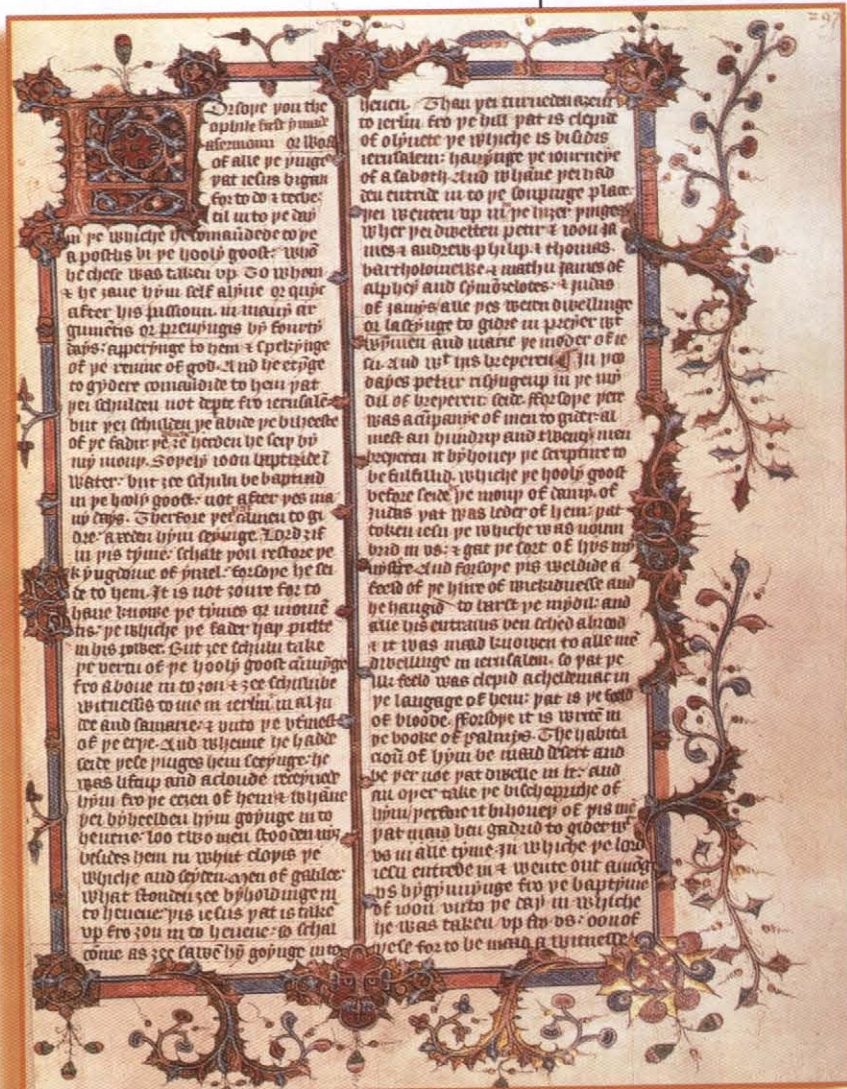 297
Forsoþe þou the
ophile first ẏ made
asermoun or word
of alle þe þinge
þat iesus bigan
for to do ⁊ teche:
til in to þe daẏ
in þe whiche he comaūdede to þe
apostlis bi þe hoolẏ goost: whō
he chese was taken vp. To whom
⁊ he ȝaue hẏm self alẏue or quẏc
after his passioun. in manẏ ar
gumētis or preuẏngis bẏ fourtẏ
daẏs: apperẏnge to hem ⁊ spekẏnge
of þe reume of god. And he etẏge
to gẏdere comaūdide to hem þat
þei schulden not depte fro ierusalē
but þei schulden þe abide þe biheeste
of þe fadir þe ȝe herden he seiþ bẏ
mẏ mouþ. Soþelẏ ioon baptizide ī
water: but ȝee schuln be baptizid
in þe hoolẏ goost: not after þes ma
nẏ daẏs. Therfore þei camen to gi
dre: axeden hẏm seẏinge. Lord ȝif
in þis tẏme: schalt þou restore þe
kẏngdome of ẏrael. forsoþe he sei
de to hem. It is not ȝoure for to
haue knowe þe tẏmes or momē
tis: þe whiche þe fader haþ putte
in his power. But ȝee schuln take
þe vertu of þe hoolẏ goost cūmẏge
fro aboue in to ȝou ⁊ ȝee schuln be
witnessis to me in ierlm̄ in al iu
dee and samarie: ⁊ vnto þe vtmest
of þe erþe. And whenne he hadde
seide þese þinges hem seeẏnge: he
was liftup and acloude receẏuede
hẏm fro þe eeȝen of hem ⁊ whāne
þei bẏheelden hẏm goẏnge in to
heuene: loo two men stooden niȝ
besides hem in whijt cloþis þe
whiche and seẏden. Men of galilee:
what stonden ȝee bẏholdinge in
to heuene: þis iesus þat is take
vp fro ȝou in to heuene: so schal
cōme as ȝee sawe hẏ goẏnge into
heuen. Than þei turneden aȝein
to ierlm̄ fro þe hill þat is clepid
of olẏuete þe whiche is bisidis
ierusalem: hauẏnge þe iourneẏe
of a saboth. And whane þei had
den entride in to þe soupinge place:
þei wenten vp in þe hiȝer þinges
wher þei dwelten petir ⁊ ioon ja
mes ⁊ andrew philip ⁊ thomas.
bartholomewe ⁊ mathu james of
alpheẏ and sẏmōzelotes: ⁊ judas
of jamẏs: alle þes weren dwellinge
or lastẏnge to gidre in preẏer wt
wẏmen and marie þe moder of ie
su. And wt his breþeren. In þoo
daẏes petur risẏngeup in þe mẏ
dil of breþeren: seide. fforsoþe þere
was a cūpanẏe of men to gider: al
mest an hundriþ and twentẏ men
breþeren it bẏhoueþ þe scripture to
be fulfillid. whiche þe hoolẏ goost
before seide þe mouþ of dauiþ. of
judas þat was leder of hem: þat
token iesu þe whiche was noum
brid in vs: ⁊ gat þe sort of hẏs mẏ
nẏstre. And forsoþe þis weldide a
feeld of þe hire of wickidnesse and
he hangid: to barst þe mẏdil: and
alle his entrails ben sched abrod
⁊ it was maad knowen to alle mē
dwellinge in ierusalem. so þat þe
ilk feeld was clepid acheldemac in
þe langage of hem: þat is þe feeld
of bloode. fforsoþe it is writē in
þe booke of psalmẏs. The habita
cioū of hẏm be maad desert and
be þer not þat dwelle in it: and
an oþer take þe bischopriche of
hẏm: þerfore it bihoueþ of þis mē
þat maad ben gadrid to gider wt
vs in alle tẏme: in whiche þe lord
iesu entrede in ⁊ wente out amōg
vs bẏgẏnnẏnge fro þe baptẏme
of ioon vnto þe daẏ in whiche
he was taken vp fro vs: oon of
þese for to be maad a witnesse